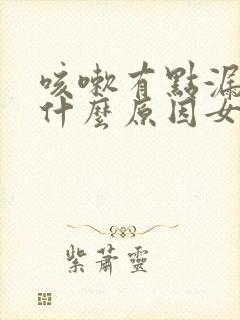 咳嗽有點漏
什麼原因女
紫蕭靈